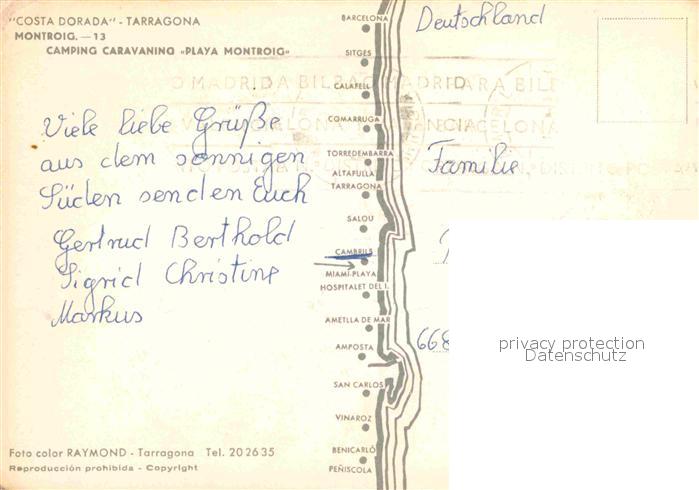 "COSTA DORADA" - TARRAGONA
MONTROIG. — 13
CAMPING CARAVANING «PLAYA MONTROIG»
Viele liebe Grüße
aus dem sonnigen
Süden senden Euch
Gertrud Berthold
Sigrid Christine
Markus
Foto color RAYMOND - Tarragona Tel. 202635
Reproducción prohibida - Copyright
BARCELONA
SITGES
CALAFELL
COMARRUGA
TORREDEMBARRA
ALTAFULLA
TARRAGONA
SALOU
CAMBRILS
MIAMI-PLAYA
HOSPITALET DEL I.
AMETLLA DE MAR
AMPOSTA
SAN CARLOS
VINAROZ
BENICARLÓ
PEÑISCOLA
Deutschland
MADRID A BILBAO MADRID
BARCELONA
Familie
668
privacy protection
Datenschutz